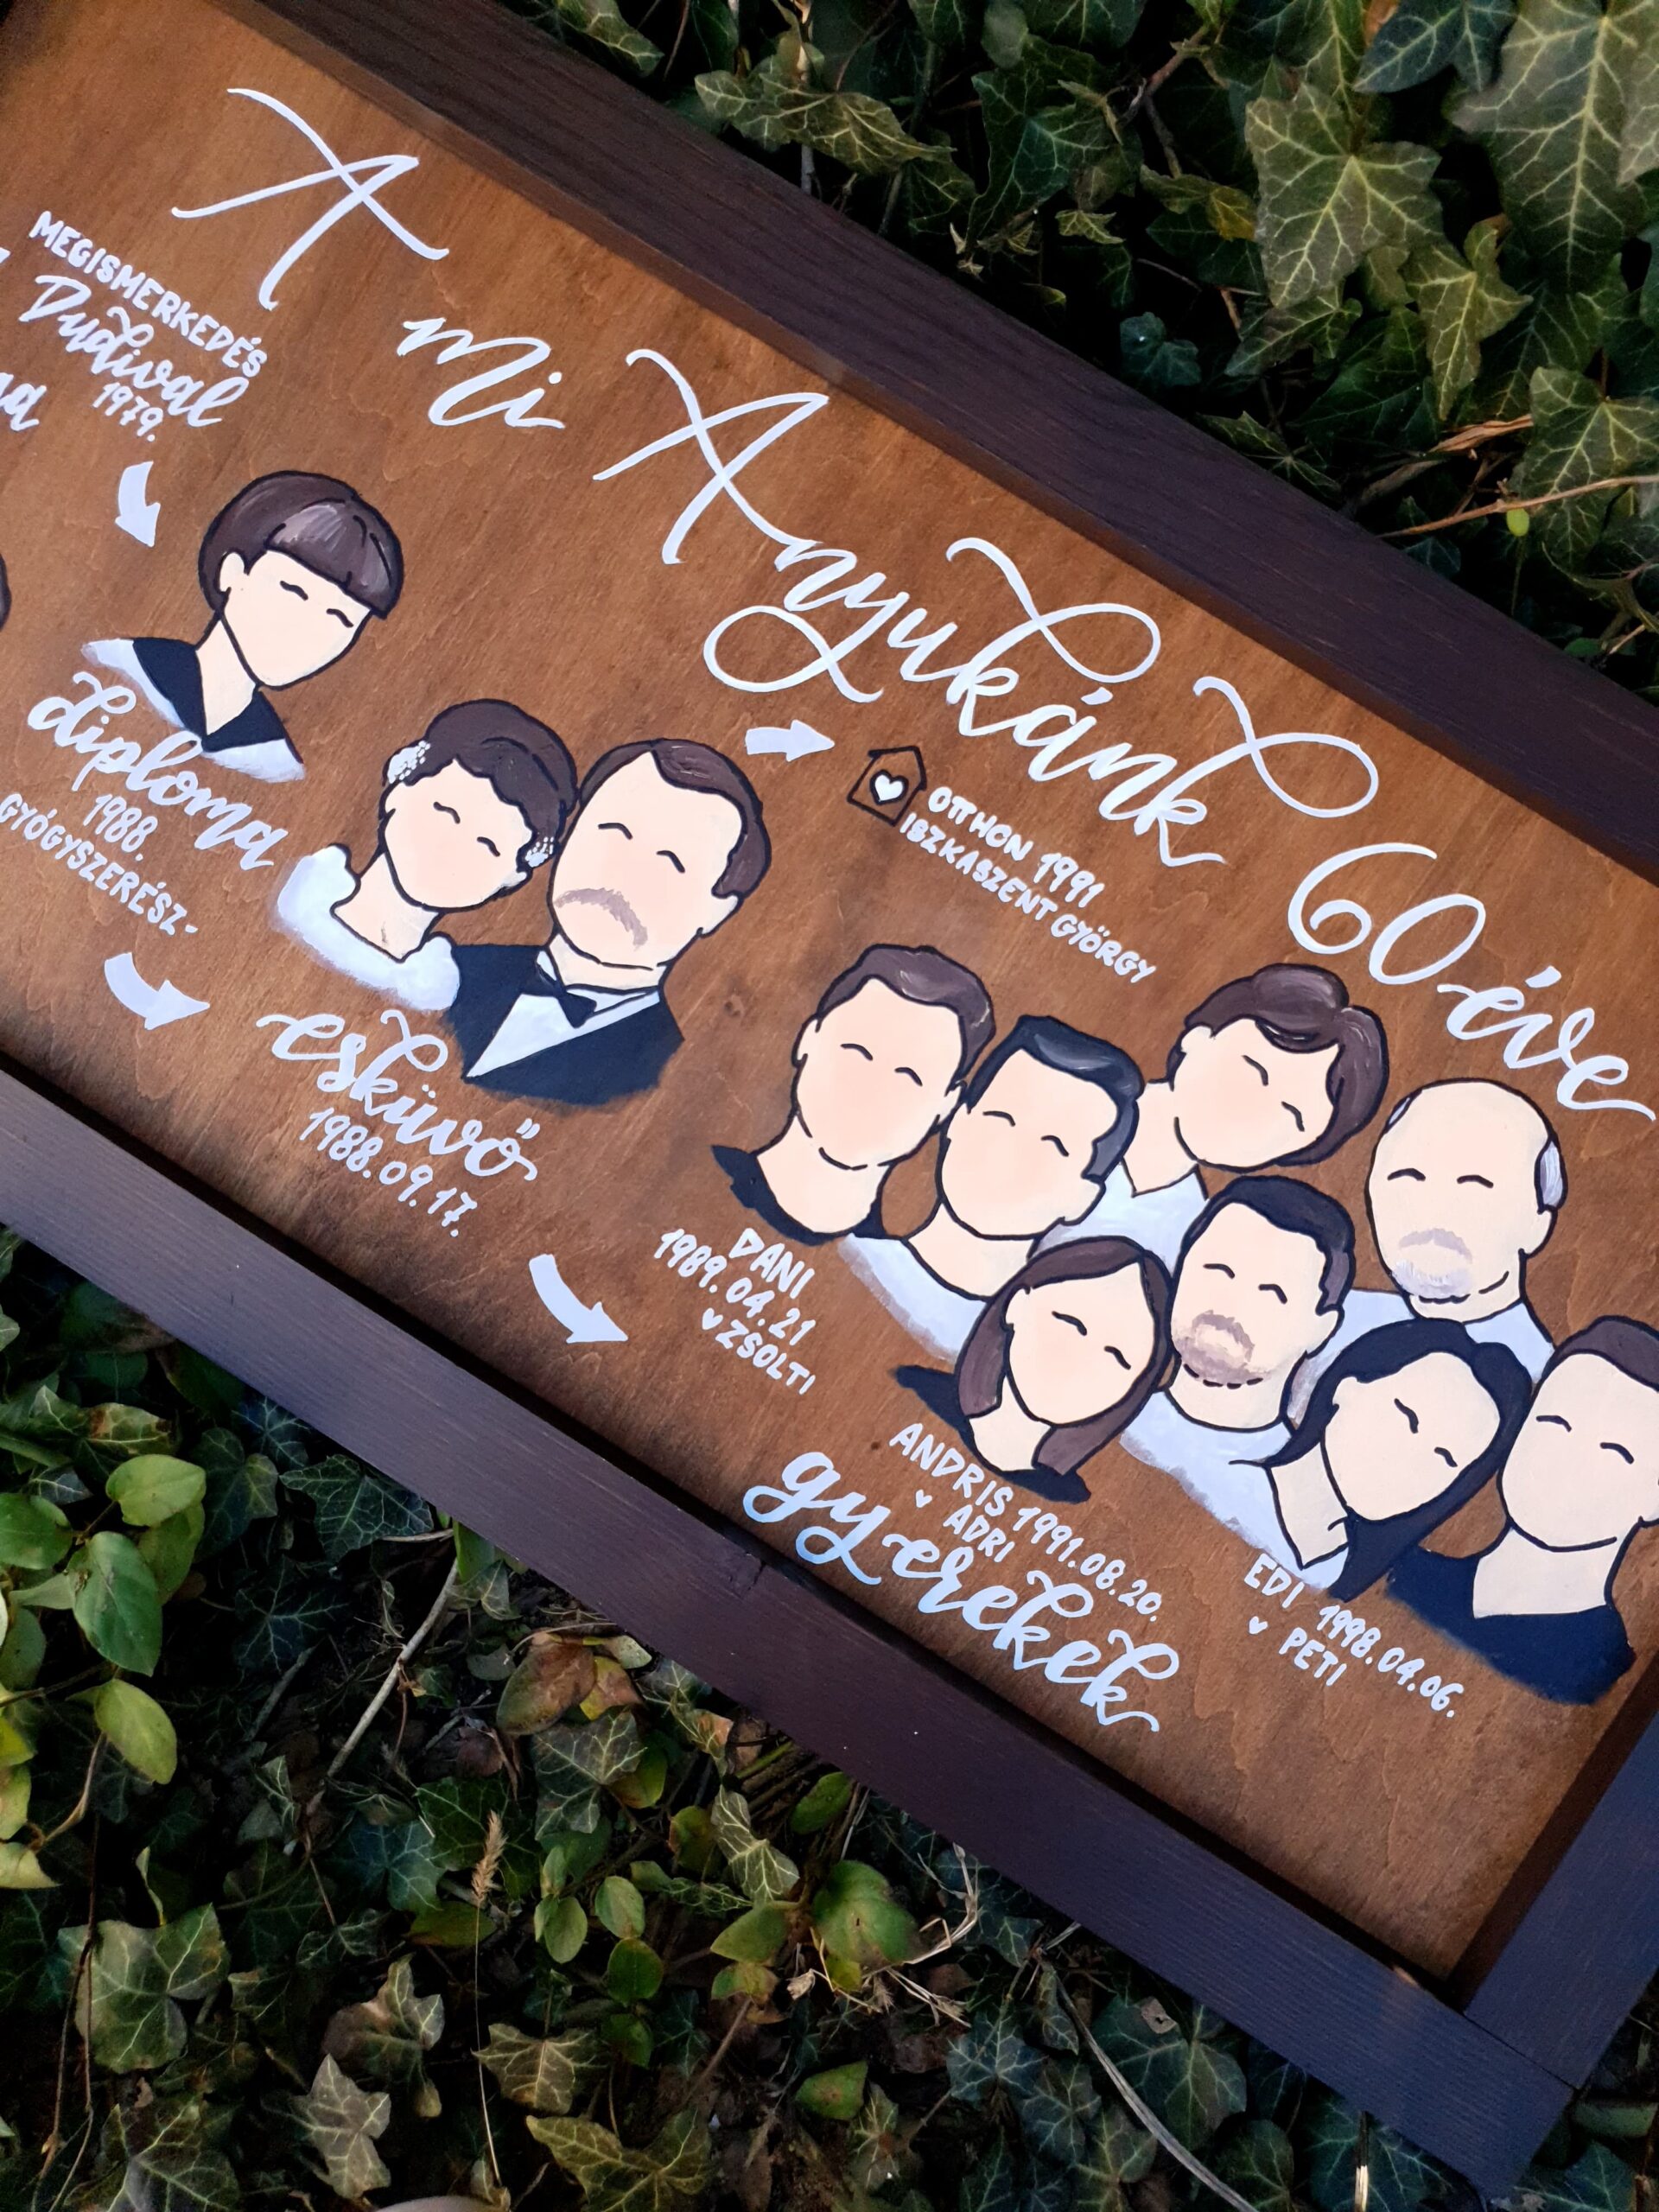 A mi Anyukánk 60 éve
MEGISMERKEDÉS
Dudival
1979.
diploma
1988.
GYÓGYSZERÉSZ-
esküvő
1988.09.17.
OTTHON 1991
ISZKASZENTGYÖRGY
DANI
1989.04.21
ZSOLTI
ANDRIS 1991.08.20.
ADRI
EDI 1998.04.06.
PETI
gyerekek